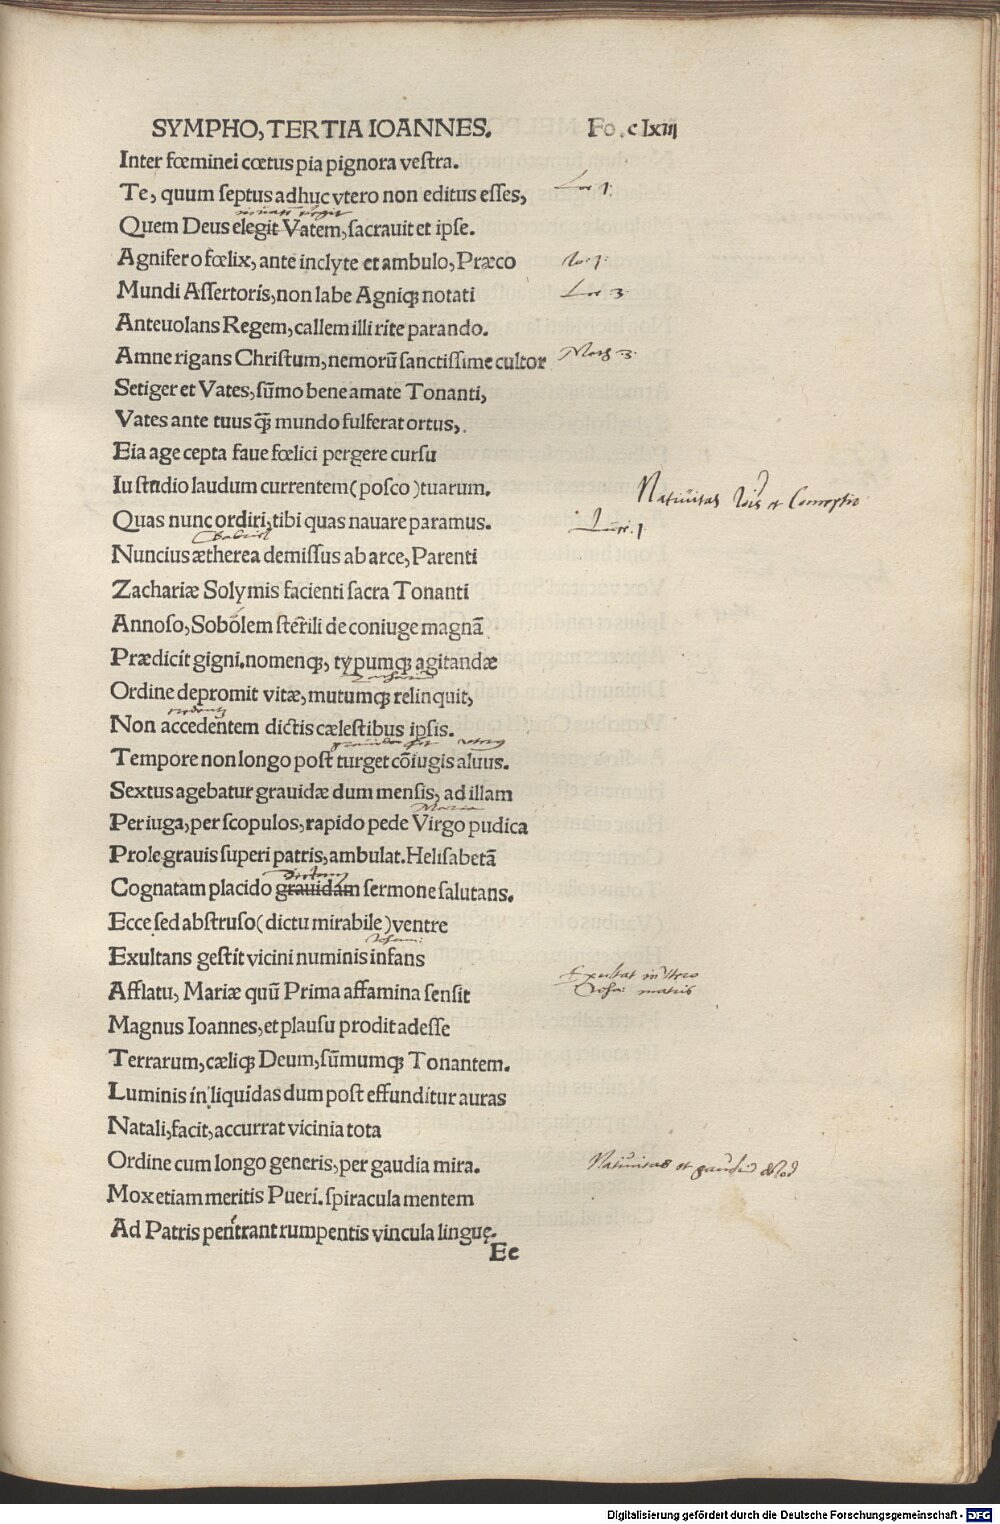 SYMPHO, TERTIA IOANNES. Fo. clxiii
Inter fœminei cœtus pia pignora vestra.
Te, quum septus adhuc vtero non editus esses, Luc 1:
Quem Deus elegit Vatem, sacrauit et ipse.
Agnifero fœlix, ante inclyte et ambulo, Præco Io. 1:
Mundi Assertoris, non labe Agniqꝫ notati Luc 3
Anteuolans Regem, callem illi rite parando.
Amne rigans Christum, nemorū sanctissime cultor 3
Setiger et Vates, sūmo bene amate Tonanti,
Vates ante tuus qꝫ̄ mundo fulserat ortus,
Eia age cepta faue fœlici pergere cursu
Iu studio laudum currentem (posco) tuarum.
Natiuitas Iois et Conceptio
Quas nunc ordiri, tibi quas nauare paramus.
Luc. 1
Gabriel
Nuncius ætherea demissus ab arce, Parenti
Zachariæ Solymis facienti sacra Tonanti
Annoso, Sobolem sterili de coniuge magnā
Prædicit gigni. nomenqꝫ, typumqꝫ agitandæ
Ordine depromit vitæ, mutumqꝫ relinquit,
Non accedentem dictis cælestibus ipsis.
Tempore non longo post turget cōiugis aluus.
Sextus agebatur grauidæ dum mensis, ad illam
Maria
Per iuga, per scopulos, rapido pede Virgo pudica
Prole grauis superi patris, ambulat. Helisabetā
Cognatam placido grauidam sermone salutans.
Ecce sed abstruso (dictu mirabile) ventre
Exultans gestit vicini numinis infans
Exultat in vtero
matris
Afflatu, Mariæ quū Prima affamina sensit
Magnus Ioannes, et plausu prodit adesse
Terrarum, cæliqꝫ Deum, sūmumqꝫ Tonantem.
Luminis in liquidas dum post effunditur auras
Natali, facit, accurrat vicinia tota
Ordine cum longo generis, per gaudia mira. Natiuitas et gaudiū
Mox etiam meritis Pueri. spiracula mentem
Ad Patris penetrant rumpentis vincula linguę.
Ee
Digitalisierung gefördert durch die Deutsche Forschungsgemeinschaft - DFG